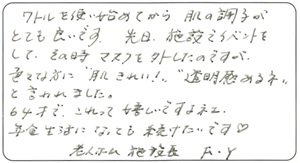 ワトルを使い始めてから 肌の調子が
とても良いです。先日、施設でイベントを
して、その時マスクを外したのですが、
色々な方に"肌きれい!、"透明感あるネ"
と言われました。
64才で、これって嬉しいですネエ。
年金生活になっても続けたいです♡
老人ホーム 施設長 F・Y